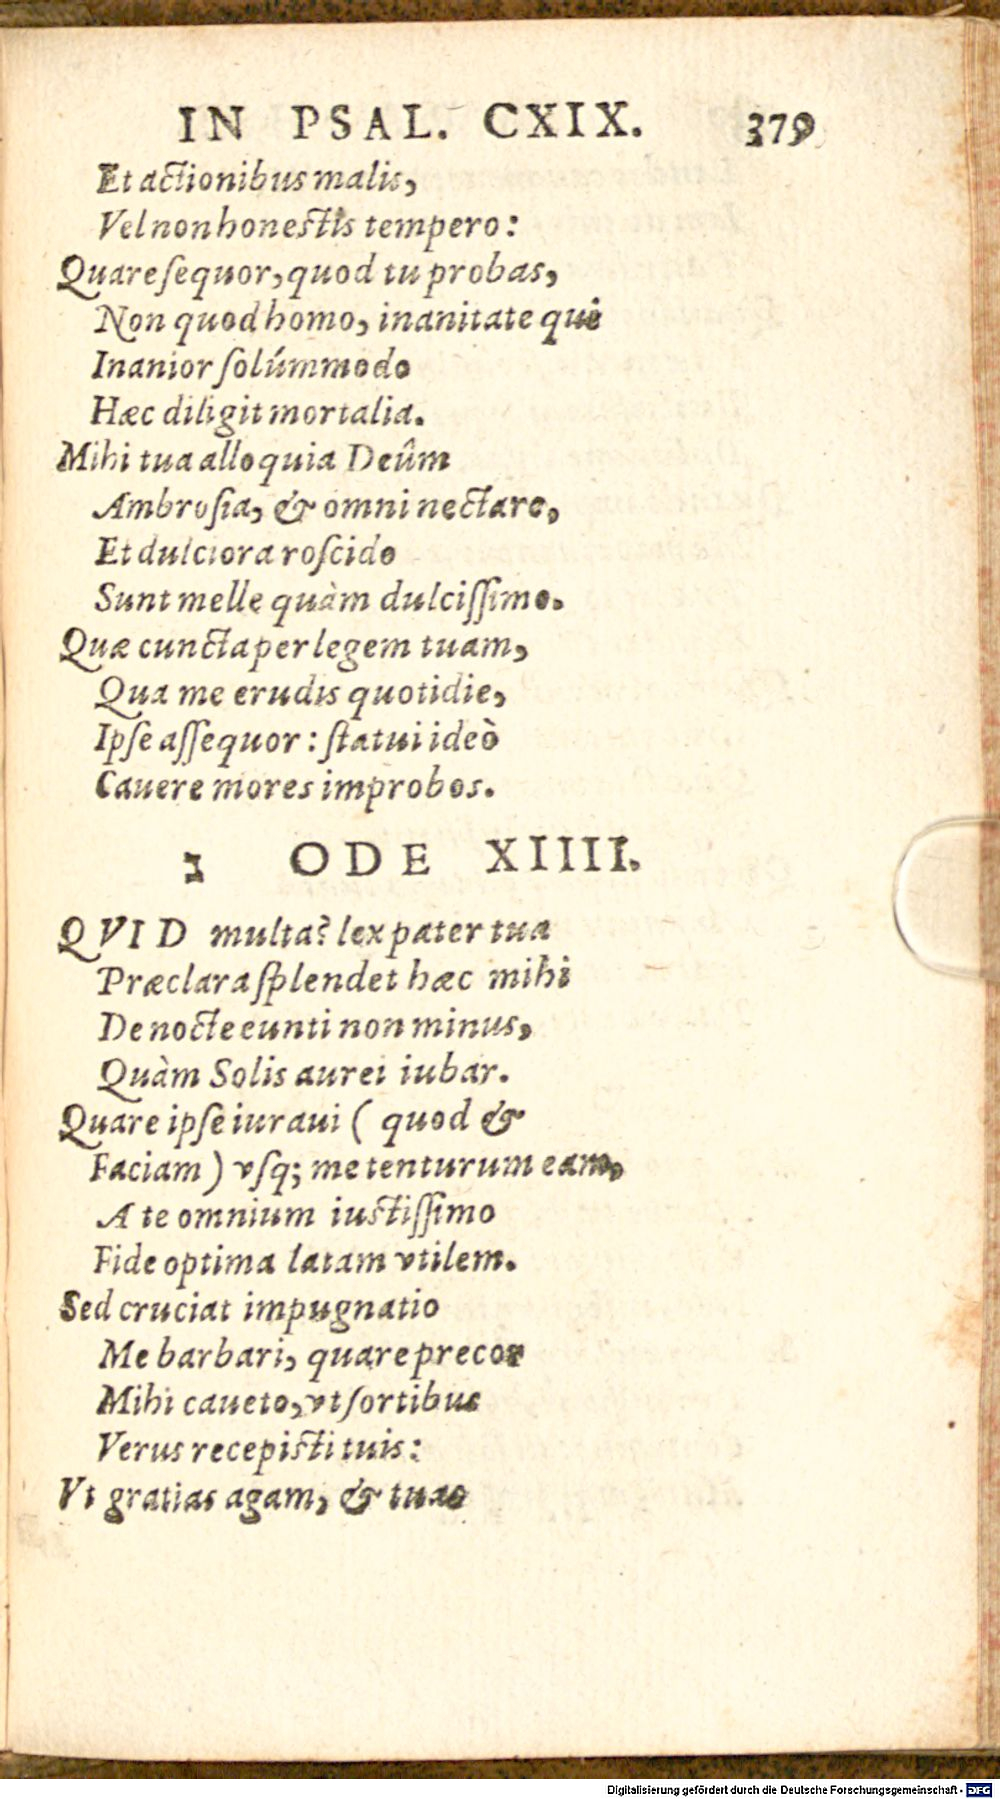 IN PSAL. CXIX. 379
Et actionibus malis,
Vel non honestis tempero:
Quare sequor, quod tu probas,
Non quod homo, inanitate qui
Inanior solúmmodo
Hæc diligit mortalia.
Mihi tua alloquia Deûm
Ambrosia, & omni nectare,
Et dulciora roscido
Sunt melle quàm dulcissimo.
Quæ cuncta per legem tuam,
Qua me erudis quotidie,
Ipse assequor: statui ideò
Cauere mores improbos.
נ ODE XIIII.
QVID multa? lex pater tua
Præclara splendet hæc mihi
De nocte eunti non minus,
Quàm Solis aurei iubar.
Quare ipse iuraui ( quod &
Faciam ) vsq; me tenturum eam,
A te omnium iustissimo
Fide optima latam vtilem.
Sed cruciat impugnatio
Me barbari, quare precor
Mihi caueto, vt sortibus
Verus recepisti tuis:
Vt gratias agam, & tuas
Digitalisierung gefördert durch die Deutsche Forschungsgemeinschaft - DFG